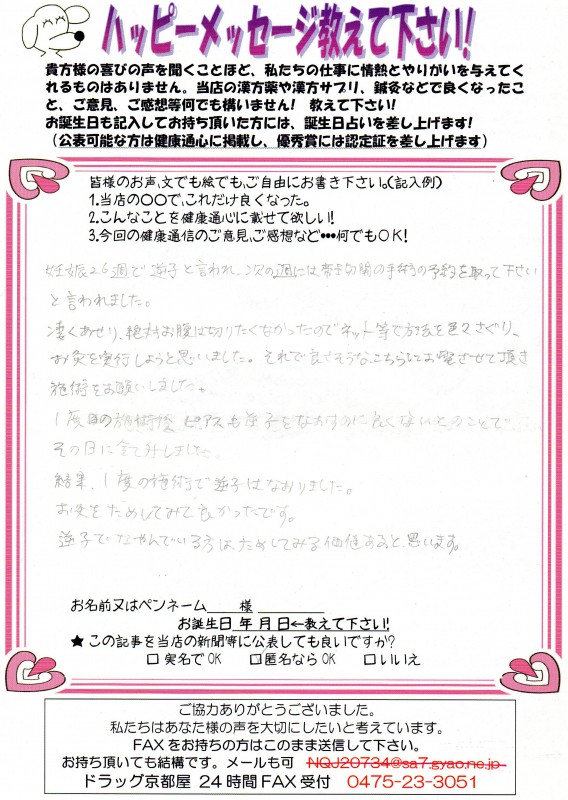 ハッピーメッセージ教えて下さい!
貴方様の喜びの声を聞くことほど、私たちの仕事に情熱とやりがいを与えてく
れるものはありません。当店の漢方薬や漢方サプリ、鍼灸などで良くなったこ
と、ご意見、ご感想等何でも構いません! 教えて下さい!
お誕生日も記入してお持ち頂いた方には、誕生日占いを差し上げます!
(公表可能な方は健康通心に掲載し、優秀賞には認定証を差し上げます)
皆様のお声、文でも絵でも、ご自由にお書き下さい。(記入例)
1.当店の〇〇で、これだけ良くなった。
2.こんなことを健康通心に載せて欲しい!
3.今回の健康通信のご意見、ご感想など・・・何でもOK!
妊娠26週で逆子と言われ、次の週には帝王切開の手術の予約を取って下さい
と言われました。
凄くあせり、絶対お腹は切りたくなかったのでネット等で方法を色々さぐり、
お灸を実行しようと思いました。それで良さそうなこちらにお電話させて頂き
施術をお願いしました。
1度目の施術後 ピアスも逆子をなおすのに良くないとのことで
その日に全て外しました。
結果、1度の施術で逆子はなおりました。
お灸をためしてみて良かったです。
逆子でなやんでいる方はためしてみる価値あると思います。
お名前又はペンネーム 様
お誕生日 年 月 日←教えて下さい!
★ この記事を当店の新聞等に公表しても良いですか?
□ 実名でOK □匿名ならOK □いいえ
ご協力ありがとうございました。
私たちはあなた様の声を大切にしたいと考えています。
FAXをお持ちの方はこのまま送信して下さい。
お持ち頂いても結構です。メールも可 NQJ20734@sa7.gyao.ne.jp
ドラッグ京都屋 24時間FAX受付 0475-23-3051